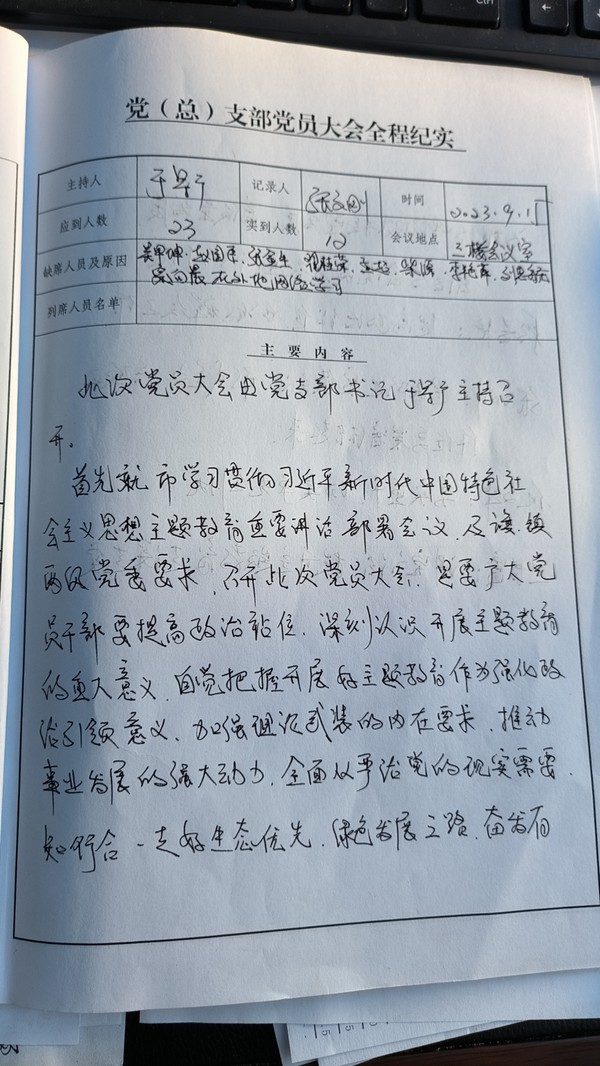 Ctrl
党（总）支部党员大会全程纪实
主持人 记录人 时间 2023.9.15
应到人数 23 实到人数 12 会议地点 三楼会议室
缺席人员及原因
在外地网络学习
列席人员名单
主要内容
此次党员大会由党支部书记 主持召
开。
首先就市学习贯彻习近平新时代中国特色社
会主义思想主题教育重要讲话部署会议，及 镇
两级党委要求，召开此次党员大会，是要广大党
员干部要提高政治站位，深刻认识开展主题教育
的重大意义，自觉把握开展好主题教育作为强化政
治引领意义、加强理论武装的内在要求，推动
事业发展的强大动力，全面从事治党的现实需要，
知行合一走好生态优先，绿色发展之路，奋发有